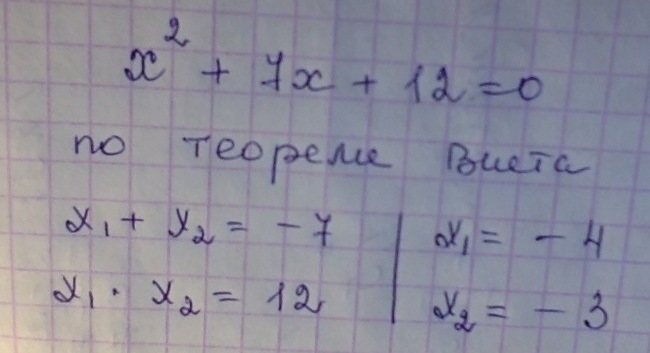 x² + 7x + 12 = 0
по теореме Виета
x₁ + x₂ = -7 | x₁ = -4
x₁ · x₂ = 12 | x₂ = -3